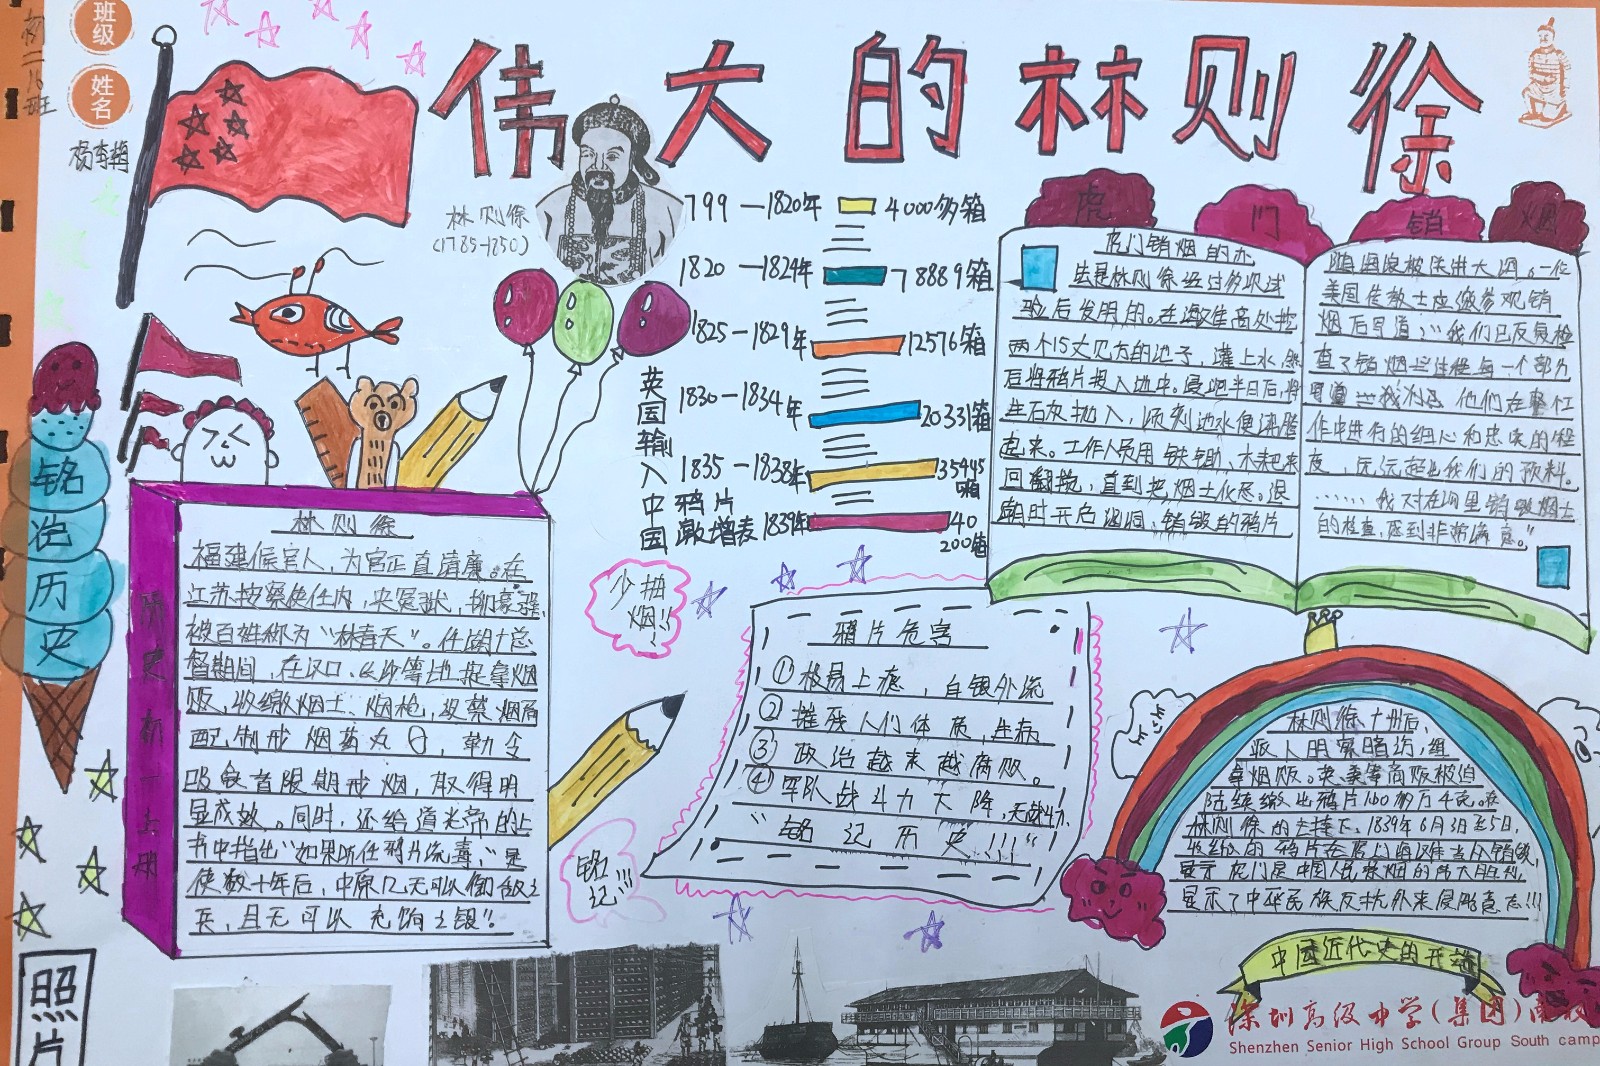 班级
初二16班
姓名
伟大的林则徐
林则徐
(1785-1850)
1799—1820年 4000多箱
1820—1824年 78889箱
1825—1829年 12576箱
1830—1834年 20331箱
1835—1838年 35445箱
1839年 40200箱
英国输入中国
鸦片激增表
虎门销烟
虎门销烟的办
法是林则徐经过多次试
验后发明的。在海滩高处挖
两个15丈见方的池子,灌上水,然
后将鸦片投入池中。浸泡半日后,将
生石灰抛入,顷刻池水便沸腾
起来。工作人员用铁锄、木耙来
回翻搅,直到把烟土化尽。退
潮时开启涵洞,销毁的鸦片
随海浪被
美国传教士应邀参观销
烟后写道:“我们已反复检
查了销烟
他们在整个工
作中进行的细心和忠实的程
度,远远超出我们的预料。
……我对在
的检查,感到非常满意。”
铭浩历史
林则徐
福建侯官人,为官正直清廉。在
江苏按察使任内,
被百姓称为“林青天”。任湖广总
督期间,在汉口、长沙等地捉拿烟
贩,收缴烟土、烟枪,
配制戒烟药丸
吸食者限期戒烟,取得明
显成效。同时,还给道光帝的上
书中指出“
使数十年后,中原几无可以御敌之
兵,且无可以充饷之银”。
少抽烟!!!
铭记!!!
鸦片危害
①极易上瘾,白银外流
②摧残人们体质,生病
③政治越来越腐败。
④军队战斗力大降,无战斗力
“铭记历史!!!”
林则徐
派人明察暗访,缉
拿烟贩。英美等商贩被迫
陆续缴出鸦片100多万千克。在
林则徐的主持下,1839年6月3日至5日,
收缴的鸦片在虎门海滩当众销毁,
显示了中华民族反抗外来侵略意志!!!
中国近代史的开端
照片
深圳高级中学(集团)南校
Shenzhen Senior High School Group South camp